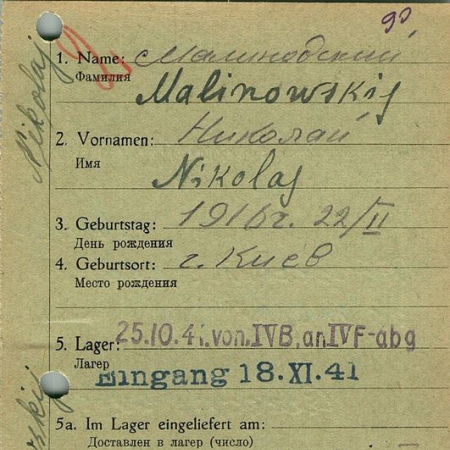 90
1. Name: Малиновский
Фамилия
Malinowskij
2. Vornamen: Николай
Имя
Nikolaj
3. Geburtstag: 1916 г. 22/II
День рождения
4. Geburtsort: г. Киев
Место рождения
25.10.41. von IVB, an IVF-abg
5. Lager:
Лагер
Eingang 18.XI.41
5a. Im Lager eingeliefert am:
Доставлен в лагер (число)
Nikolaj